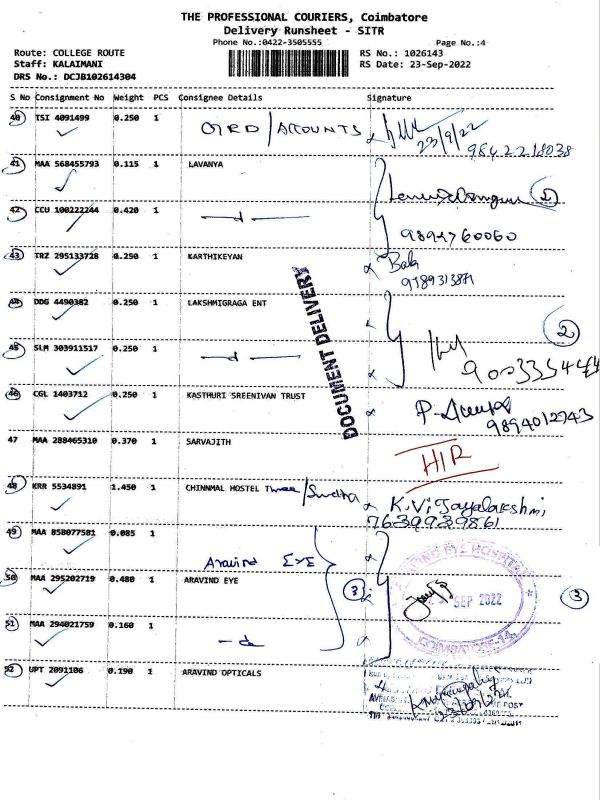 THE PROFESSIONAL COURIERS, Coimbatore
Delivery Runsheet - SITR
Phone No.:0422-3505555 Page No.:4
Route: COLLEGE ROUTE RS No.: 1026143
Staff: KALAIMANI RS Date: 23-Sep-2022
DRS No.: DCJB102614304
S No Consignment No Weight PCS Consignee Details Signature
40 TSI 4091499 0.250 1 / ACCOUNTS
23/9/22
41 MAA 568455793 0.115 1 LAVANYA
1
42 CCU 100222244 0.420 1 — d —
9894760060
43 TRZ 295133728 0.250 1 KARTHIKEYAN Bala
44 DDG 4490382 0.250 1 LAKSHMIGRAGA ENT
2
45 SLM 303911517 0.250 1 — d —
DOCUMENT DELIVERY
46 CGL 1403712 0.250 1 KASTHURI SREENIVAN TRUST
9894012943
47 MAA 288465310 0.370 1 SARVAJITH HIR
48 KRR 5534891 1.450 1 CHINNMAL HOSTEL
7639939861
49 MAA 858077581 0.085 1 Aravind EYE
50 MAA 295202719 0.480 1 ARAVIND EYE 3
EYE HOSPITAL
SEP 2022
COIMBATORE-14
3
51 MAA 294021759 0.160 1 - do
52 UPT 2091106 0.190 1 ARAVIND OPTICALS